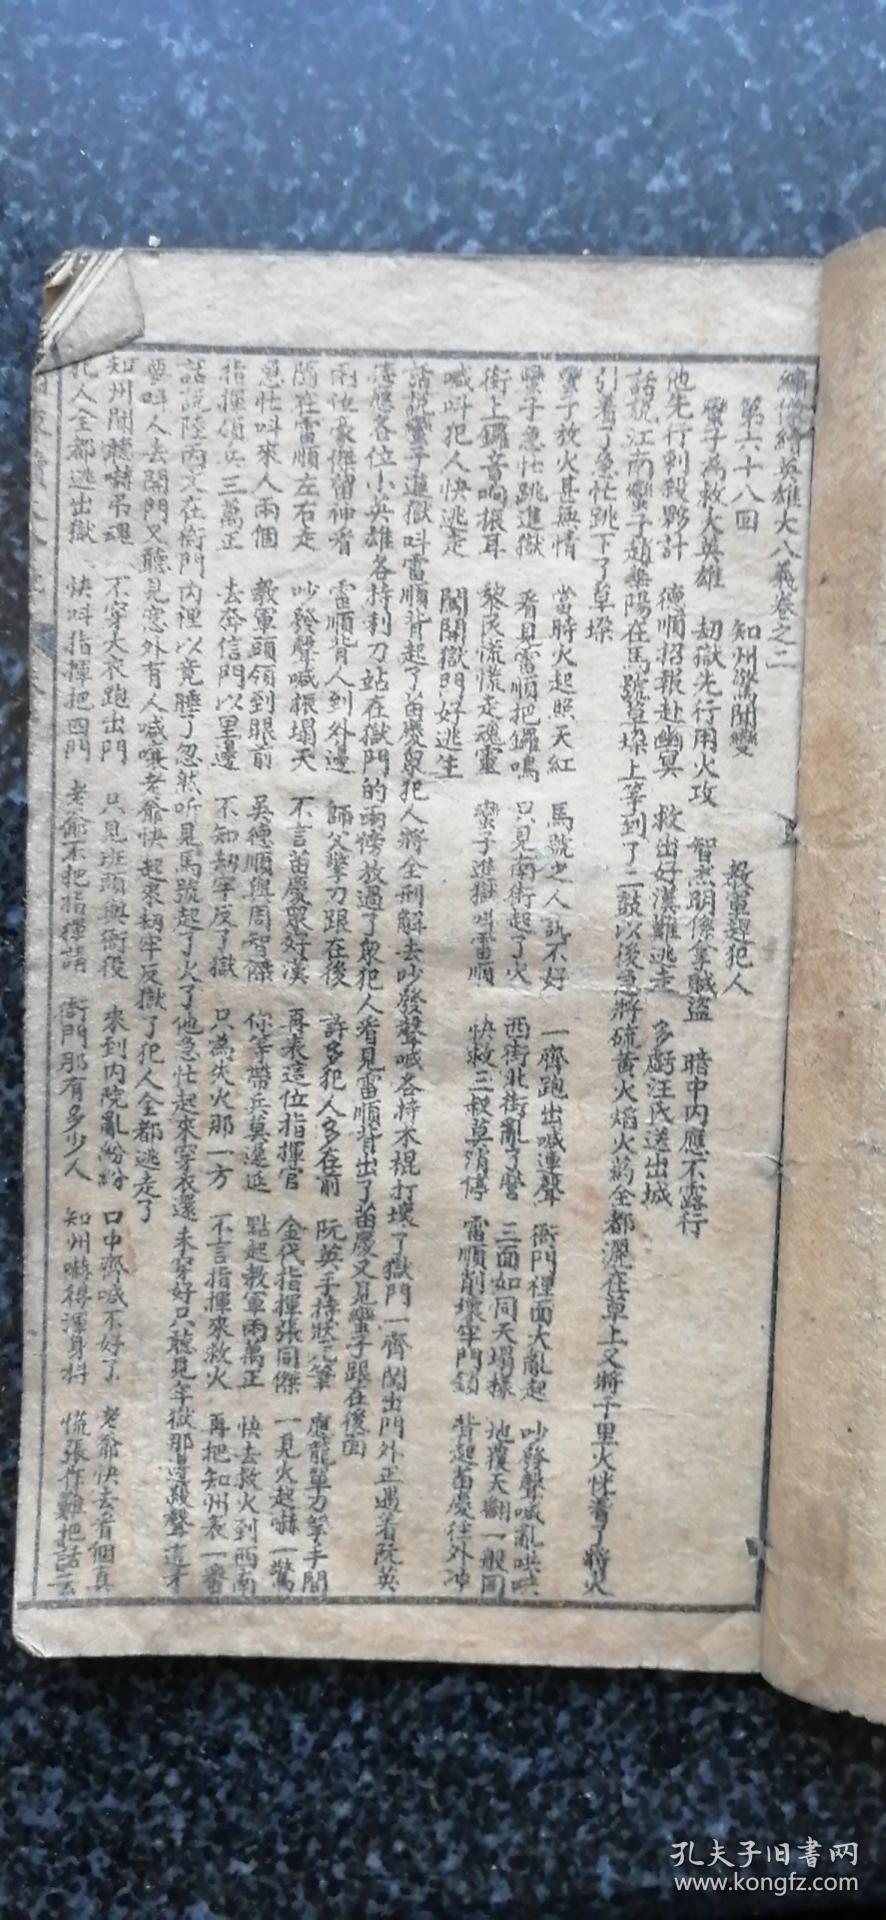 繡像續英雄大八義卷之二
第六十八回 知州驚聞變 教軍趕犯人
蠻子為救大英雄 刼獄先行用火攻 智杰明係拿賊盜 暗中內應不露行
他先行刺殺夥計 德順招報赴幽冥 救出好漢難逃走 多虧汪氏送出城
話說江南蠻子趙華陽在馬號草垛上等到了二鼓以後急將硫黃火焰火葯全都灑在草上又將千里火恍着了將火
引着了急忙跳下了草垛
蠻子放火甚無情 當時火起照天紅 馬號之人說不好 一齊跑出喊連聲 衙門裡面大亂起 吵發聲喊亂哄哄
蠻子急忙跳進獄 看見雷順把鑼鳴 只見南街起了火 西街北街亂了營 三面如同天塌樣 地覆天翻一般同
街上鑼音响振耳 黎民慌慌走魂靈 蠻子進獄叫雷順 快救三叔莫消停 雷順削壞牢門鎖 背起苗慶往外冲
喊叫犯人快逃走 開開獄門好逃生
話說蠻子進獄叫雷順背起了苗慶眾犯人將全刑解去吵發聲喊各持木棍打壞了獄門一齊闖出門外正遇着阮英
接應各位小英雄各持利刀站在獄門的兩傍放過了眾犯人看見雷順背出了苗慶又見蠻子跟在後面
兩位豪傑留神看 雷順背人到外邊 師父拿刀跟在後 許多犯人多在前 阮英手持狀元筆 應龍單刀拿手間
隨在雷順左右走 吵發聲喊振塌天 不言苗慶眾好漢 再表這位指揮官 金代指揮張同傑 一見火起嚇一驚
急忙叫來人兩個 教軍頭領到眼前 吳德順與周智傑 你等帶兵莫遲延 點起教軍兩萬正 快去救火到西南
指揮領兵三萬正 去奔信門以里邊 不知刼牢反了獄 只為失火那一方 不言指揮來救火 再把知州表一番
話說陸丙文在衙門內裡以竟睡了忽然听見馬號起了火了他急忙起來穿衣還未穿好只聽見牢獄那邊殺聲這才
要叫人去開門又聽見窓外有人喊嚷老爺快起來刼牢反獄了犯人全都逃走了
知州聞聽嚇吊魂 不穿大衣跑出門 只見班頭與衙役 來到內院亂紛紛 口中齊喊不好了 老爺快去看個真
犯人全都逃出獄 快叫指揮把四門 老爺不把指揮請 衙門那有多少人 知州嚇得渾身抖 慌張作難把話云
孔夫子旧书网
www.kongfz.com